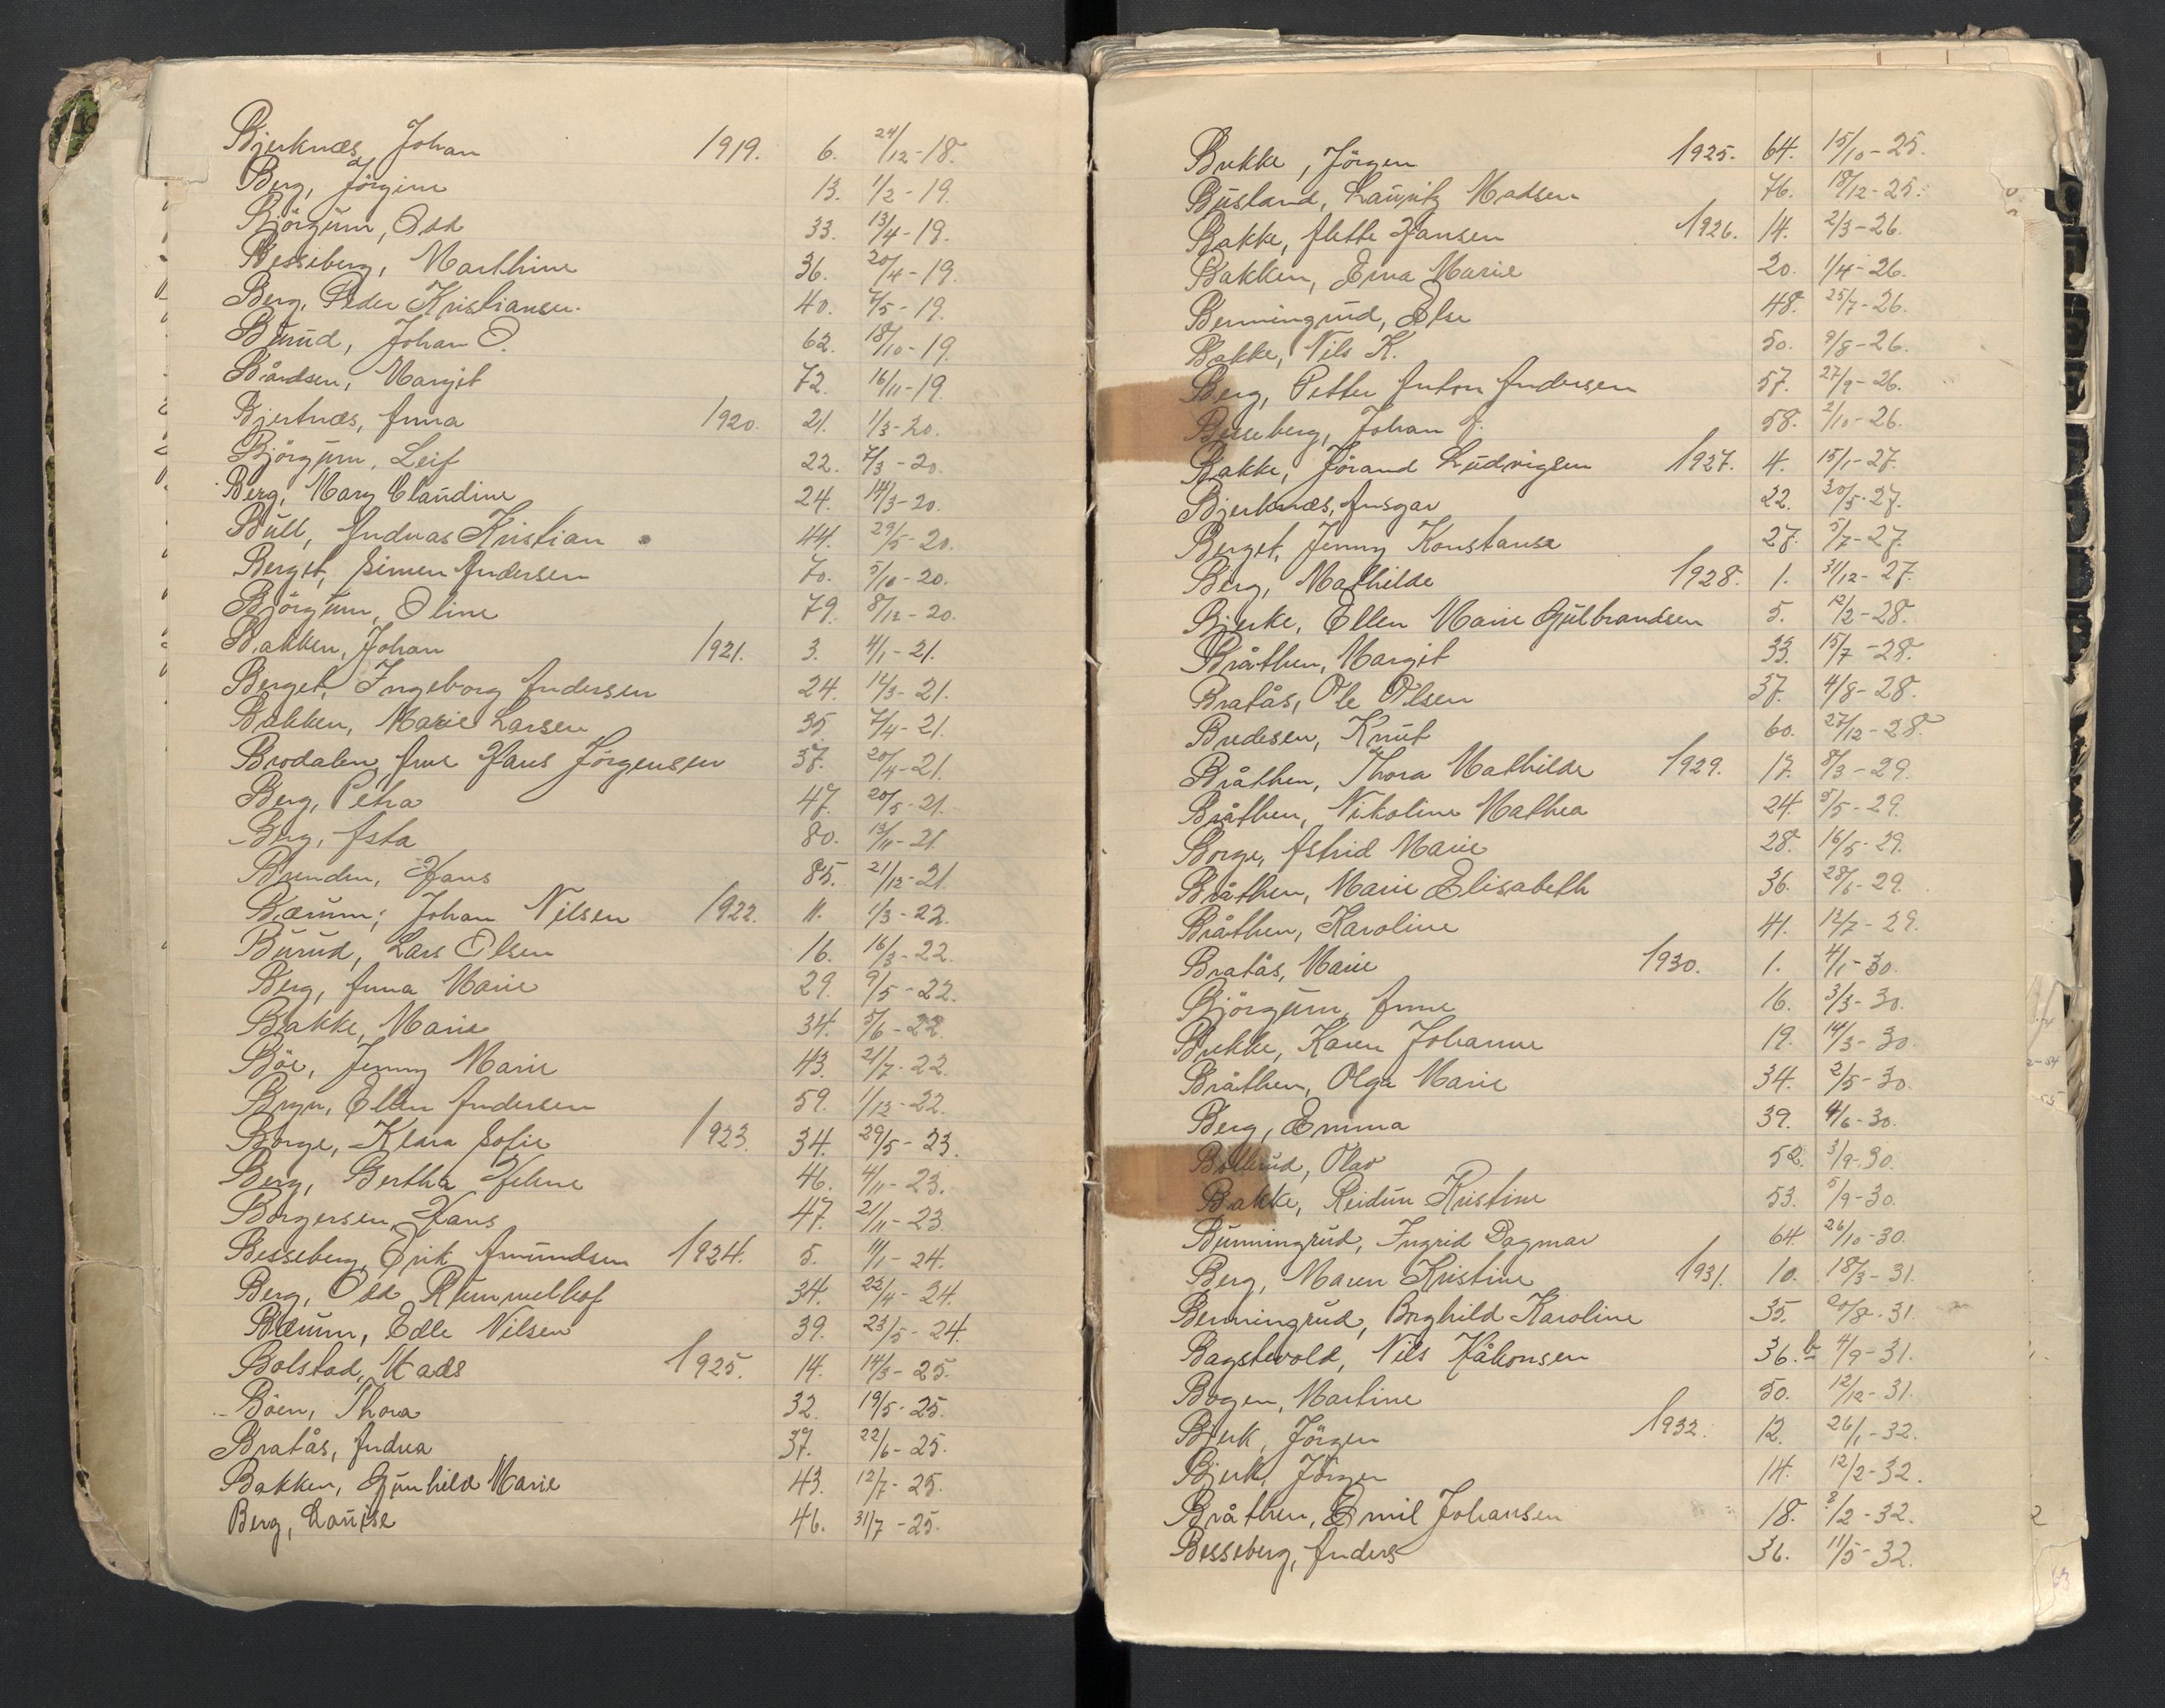 Bjerknæs, Johan 1919. 6. 24/12-18.
Berg, Jörgine 13. 1/2-19.
Björgum, Odd 33. 13/4-19.
Besseberg, Marthine 36. 20/4-19.
Berg, Peder Kristiansen. 40. 7/5-19.
Burud, Johan O. 62. 18/10-19.
Bårdsen, Margit 72. 16/11-19.
Bjertnæs, Anna 1920. 21. 1/3-20.
Björgum, Leif 22. 7/3-20.
Berg, Mary Claudine 24. 14/3-20.
Bull, Andreas Kristian 44. 29/5-20.
Berget, Simen Andersen 70. 5/10-20.
Björgum, Oline 79. 8/12-20.
Bakken, Johan 1921. 3. 4/1-21.
Berget, Ingeborg Andersen 24. 14/3-21.
Bakken, Marie Larsen 35 7/4-21.
Brodalen, Ane Hans Jörgensen 37. 20/4-21.
Berg, Petra 47. 20/5-21.
Berg, Asta 80. 13/11-21.
Brenden, Hans 85. 21/12-21.
Bærum, Johan Nilsen 1922. 11. 1/3-22.
Burud, Lars Olsen 16. 16/3-22.
Berg, Anna Marie 29. 9/5-22.
Bakke, Marie 34. 5/6-22.
Böe, Jenny Marie 43. 21/7-22.
Bryn, Ellen Andersen 59. 1/12-22.
Borge, Klara Sofie 1923. 34. 29/5-23.
Berg, Bertha Helene 46. 4/11-23.
Borgersen, Hans 47. 21/11-23
Besseberg, Erik Amundsen 1924. 5. 11/1-24.
Berg, Odd Rummelhof 34. 22/4-24.
Bærum, Edle Nilsen 39. 23/5-24.
Bolstad, Mads 1925. 14. 14/3-25.
Böen, Thora 32. 19/5-25.
Bratås, Andrea 37. 22/6-25.
Bakken, Gunhild Marie 43. 12/7-25.
Berg, Louise 46. 31/7-25.
Brekke, Jörgen 1925. 64. 15/10-25.
Busland, Lauritz Madsen 76. 18/12-25.
Bakke, Mette Hansen 1926. 14. 2/3-26.
Bakken, Erna Marie 20. 1/4-26.
Benningrud, Else 48. 25/7-26.
Bakke, Nils K. 50. 9/8-26.
Berg, Petter Anton Andersen 57. 27/9-26.
Besseberg, Johan J. 58. 2/10-26.
Bakke, Jörand Ludvigsen 1927. 4. 15/1-27.
Bjerknæs, Ansgar 22. 30/5-27.
Berget, Jenny Konstanse 27. 5/7-27.
Berg, Mathilde 1928. 1. 31/12-27.
Bjerke, Ellen Marie Gulbrandsen 5. 12/2-28.
Bråthen, Margit 33. 15/7-28.
Bratås, Ole Olsen 37. 4/8-28.
Bredesen, Knut 60. 27/12-28.
Bråthen, Thora Mathilde 1929. 17. 8/3-29.
Bråthen, Nikoline Mathea 24. 5/5-29.
Borge, Astrid Marie 28. 16/5-29.
Bråthen, Marie Elisabeth 36. 28/6-29.
Bråthen, Karoline 41. 12/7-29.
Bratås, Marie 1930. 1. 4/1-30.
Björgum, Anne 16. 3/3-30.
Brekke, Karen Johanne 19. 14/3-30.
Bråthen, Olga Marie 34. 2/5-30.
Berg, Emma 39. 4/6-30.
Bollerud, Olav 52. 3/9-30.
Bakke, Reidun Kristine 53. 5/9-30.
Bunningrud, Ingrid Dagmar 64. 26/10-30.
Berg, Maren Kristine 1931. 10. 18/3-31.
Benningrud, Borghild Karoline 35. 20/8-31.
Bagstevold, Nils Håkonsen 36.b 4/9-31.
Bogen, Martine 50. 12/12-31.
Bjerk, Jörgen 1932. 12. 26/1-32.
Bjerk, Jörgen 14. 12/2-32.
Bråthen, Emil Johansen 18. 2/2-32.
Besseberg, Anders 36. 11/5-32.